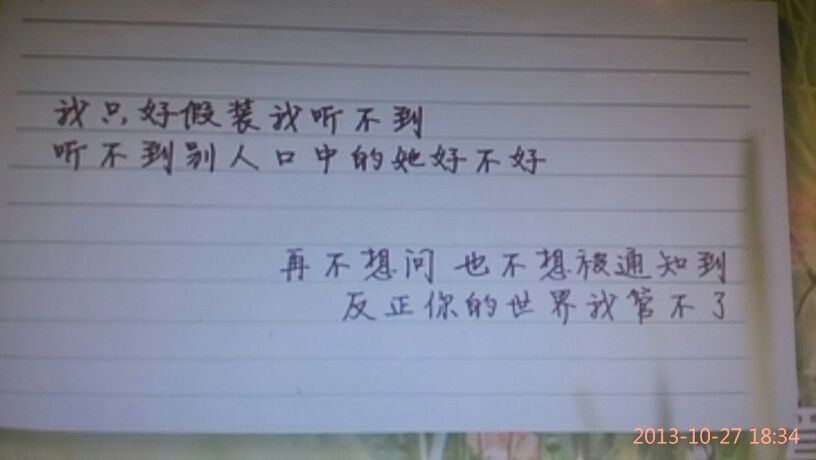 我只好假装我听不到
听不到别人口中的她好不好
再不想问 也不想被通知到
反正你的世界我管不了
2013-10-27 18:34